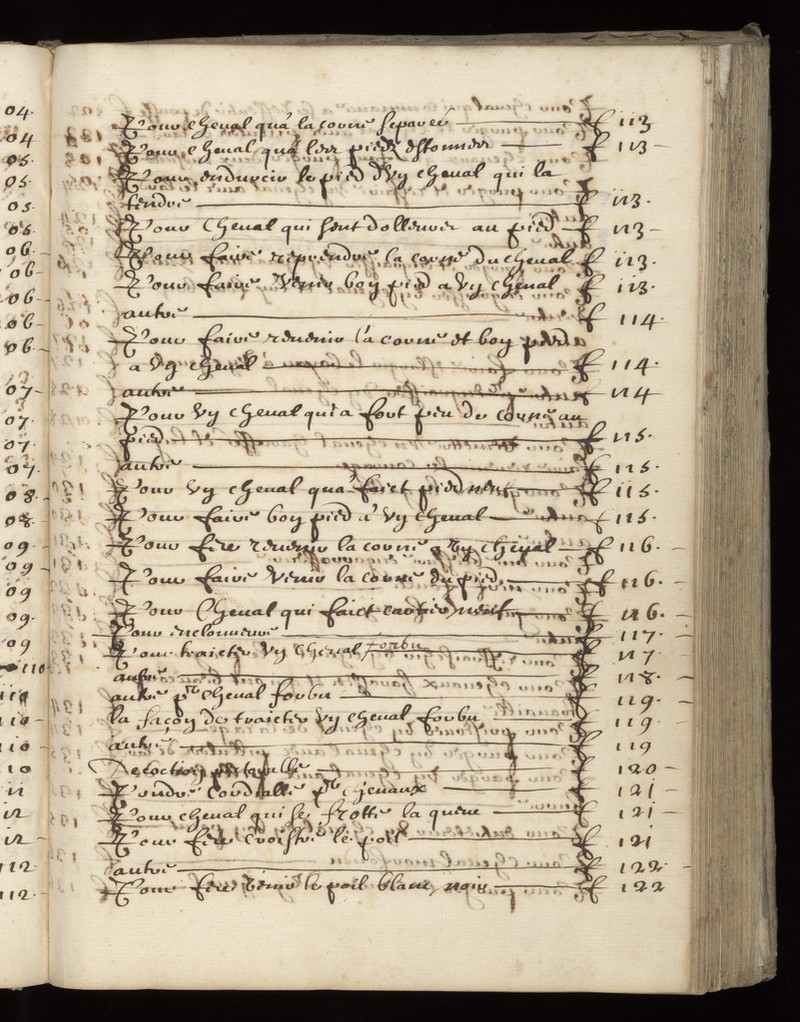 04.
04
05.
05.
05
05.
06.
06
06
06
06.
07
07.
07.
07.
08
08.
09
09
09
09.
09
110
10
10
10
12
12
112
112.
Pour cheval qu'a la corne separée f 113
Pour cheval qu'a les piedz estonnez f 113
Pour endurcir le pied d'vn cheval qui la
tendre f 113.
Pour Cheval qui sent dolleur au pied f 113
Pour faire reprendre la corne du cheval f 113.
Pour faire venir bon pied a vn cheval f 113.
autre f 114.
Pour faire revenir la corne et bon pied
a vn cheval f 114.
autre f 114
Pour vn cheval qui a fort peu de corne au
pied f 115.
autre f 115.
Pour vn cheval qu'a faict pied neuf f 115.
Pour faire bon pied a vn cheval f 115.
Pour fere revenir la corne a vn cheval f 116.
Pour faire venir la corne du pied f 116.
Pour Cheval qui faict cartier neuf f 116.
Pour encloueure f 117.
Pour traicter vn cheval forbu f 117.
autre f 118.
autre pr cheval forbu f 119.
la façon de traicter vn cheval forbu f 119
autre f 119
f 120
Poudre Cordialle pr chevaux f 121
Pour cheval qui se frotte la queue f 121
Pour fere croistre le poil f 121
autre f 122
Pour fere venir le poil blanc, noir f 122